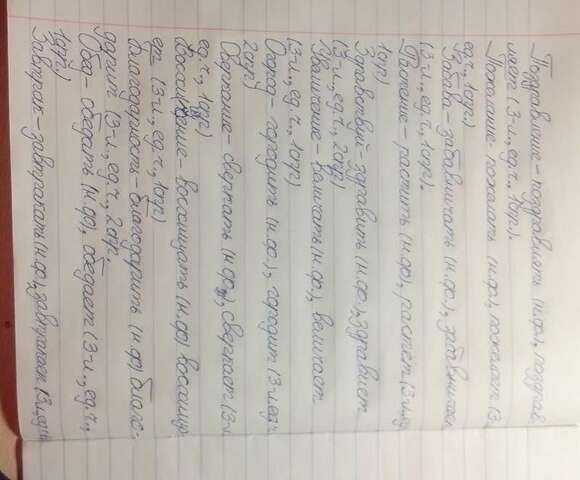 Поздравление - поздравить (н.ф.), поздрав
ляет (3-л., ед.ч., 1спр).
Пожелание - пожелать (н.ф.), пожелает (3л
ед.ч., 1спр)
Забава - забавлять (н.ф.), забавляет
(3-л, ед.ч., 1спр).
Растение - растить (н.ф), растёт (3л., ед
1спр)
Здравствуй - здравить (н.ф.), здравит
(3-л., ед.ч., 2спр)
Величание - величать (н.ф), величает
(3-л., ед.ч., 1спр)
Огород - городить (н.ф.), городит (3л.ед.ч
2спр)
Сверкание - сверкать (н.ф), сверкает (3-л
ед.ч., 1спр)
Восхищение - восхищать (н.ф) восхища
ет (3л., ед.ч., 1спр)
Благодарность - благодарить (н.ф) благо-
дарит (3-л., ед.ч., 2спр.
Обед - обедать (н.ф), обедает (3-л., ед.ч.,
1спр)
Завтрак - завтракать (н.ф), завтракает (3л, ед.ч